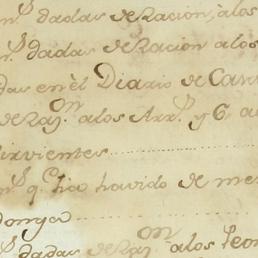 n.^s dadas de Racion, a los
n.^s dadas de Racion a los
das en èl Diario de Car
de Raz.^on a los Arr.^s y 6 a
Sirvientes
n.^s q.^e ha havido de me
donga
.^s dadas de Raz.^on a los Peon